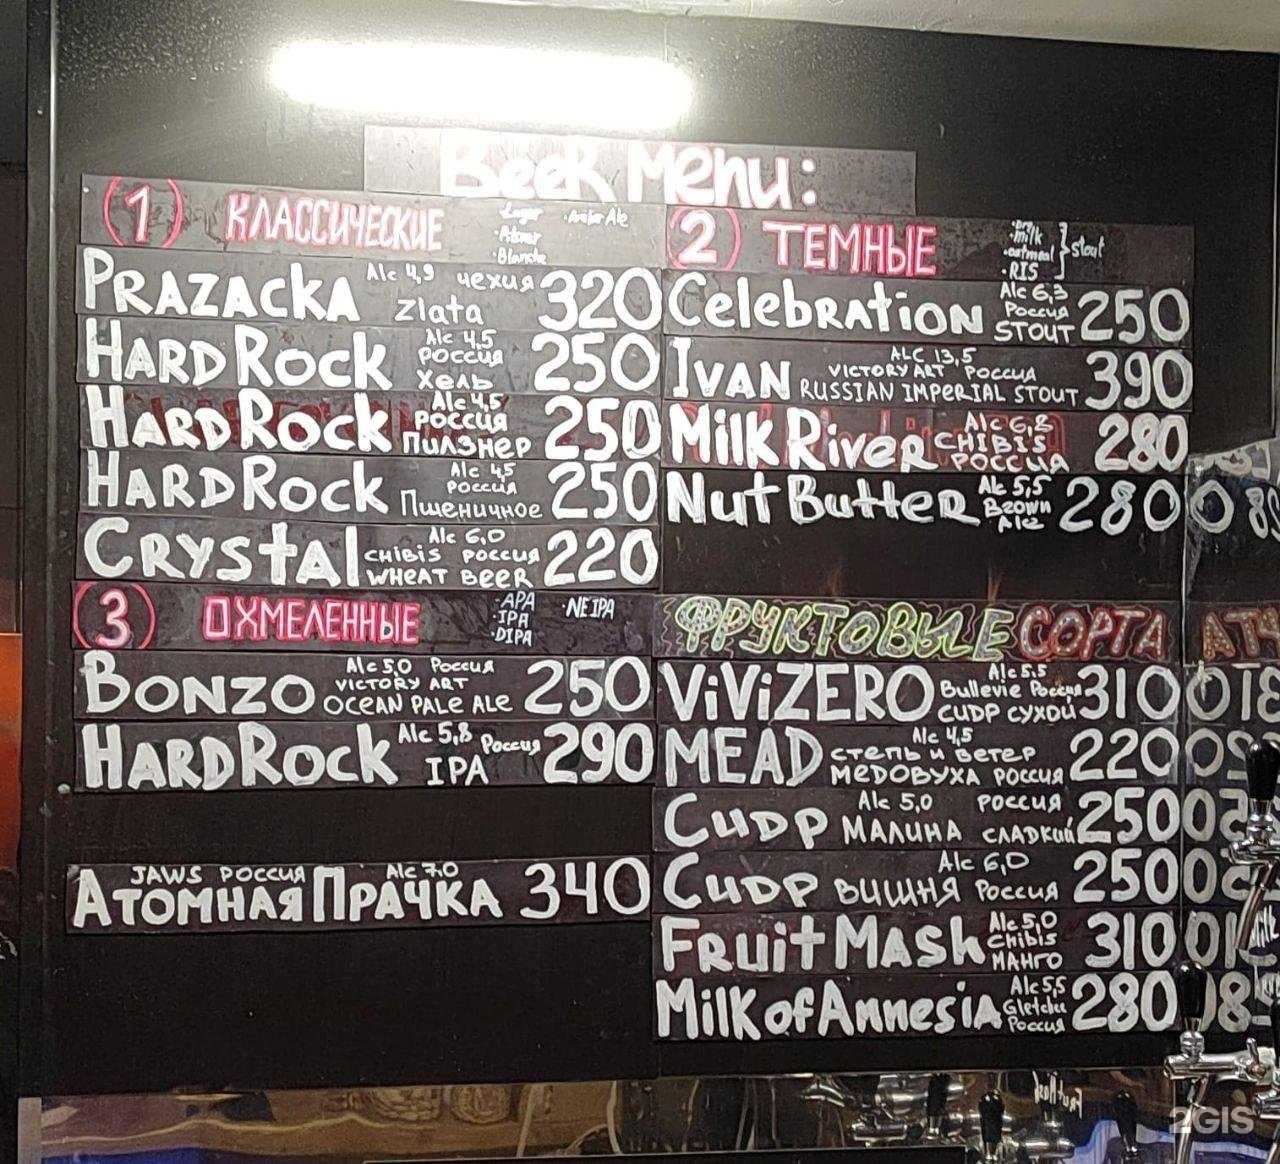 Beer Menu:
(1) КЛАССИЧЕСКИЕ
·Lager ·Amber Ale
·Blanche
PRAZACKA Alc 4,9 Чехия Zlata 320
HARD ROCK Alc 4,5 РОССИЯ Хель 250
HARD ROCK Alc 4,5 РОССИЯ Пилзнер 250
HARD ROCK Alc 4,5 РОССИЯ Пшеничное 250
CRYSTAL Alc 6,0 CHIBIS РОССИЯ WHEAT BEER 220
(3) ОХМЕЛЕННЫЕ
·APA ·NEIPA
·IPA
·DIPA
BONZO Alc 5,0 РОССИЯ VICTORY ART OCEAN PALE ALE 250
HARD ROCK Alc 5,8 РОССИЯ IPA 290
JAWS РОССИЯ Alc 7,0
АТОМНАЯ ПРАЧКА 340
(2) ТЕМНЫЕ
·Dry
·milk
·oatmeal } stout
·RIS
Celebration Alc 6,3 РОССИЯ STOUT 250
IVAN ALC 13,5 VICTORY ART РОССИЯ RUSSIAN IMPERIAL STOUT 390
Milk River Alc 6,8 CHIBIS РОССИЯ 280
Nut Butter Alc 5,5 Brown Ale 280
ФРУКТОВЫЕ СОРТА
ViViZERO Alc 5.5 Bullevie Россия СИДР СУХОЙ 310
MEAD Alc 4,5 СТЕПЬ И ВЕТЕР МЕДОВУХА РОССИЯ 220
СИДР Alc 5,0 РОССИЯ МАЛИНА СЛАДКИЙ 250
СИДР Alc 6,0 ВИШНЯ РОССИЯ 250
FRUIT MASH Alc 5,0 Chibis МАНГО 310
Milk of Amnesia Alc 5,5 Gletcher Россия 280
2GIS